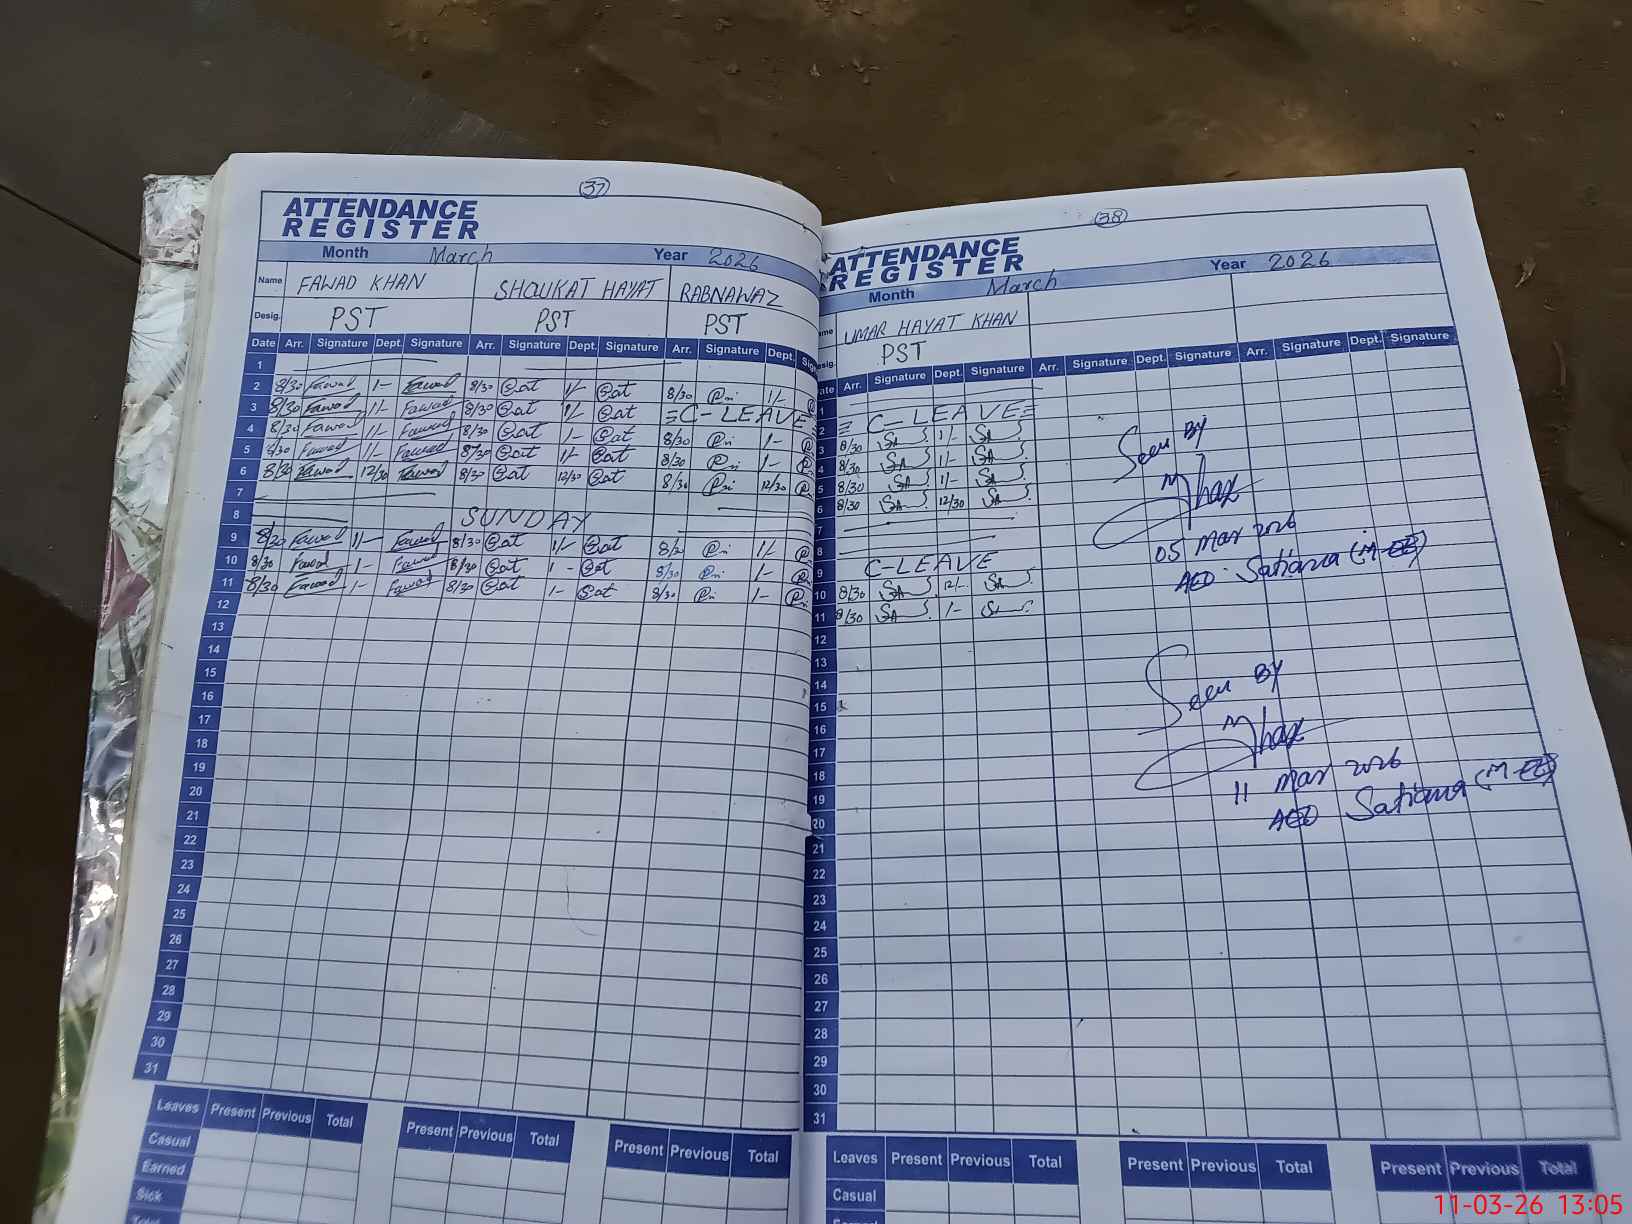 37
ATTENDANCE
REGISTER
Month March Year 2026
Name FAWAD KHAN SHOUKAT HAYAT RABNAWAZ
Desig. PST PST PST
Date Arr. Signature Dept. Signature Arr. Signature Dept. Signature Arr. Signature Dept.
1
2 8/30 Fawad 1/- Fawad 8/30 1/- 8/30 1/-
3 8/30 Fawad 1/- Fawad 8/30 1/- C-LEAVE
4 8/30 Fawad 1/- Fawad 8/30 1- 8/30 1-
5 8/30 Fawad 1/- Fawad 8/30 1/- 8/30 1-
6 8/30 Fawad 12/30 Fawad 8/30 12/30 8/30 12/30
7
8 SUNDAY
9 Fawad 1/- Fawad 8/30 1/- 1/-
10 8/30 Fawad 1- Fawad 8/30 1- 8/30 1-
11 8/30 Fawad 1- Fawad 8/30 1- 8/30 1-
12
13
14
15
16
17
18
19
20
21
22
23
24
25
26
27
28
29
30
31
Leaves Present Previous Total Present Previous Total Present Previous Total
Casual
Earned
Sick
38
ATTENDANCE
REGISTER
Month March Year 2026
UMAR HAYAT KHAN
PST
Arr. Signature Dept. Signature Arr. Signature Dept. Signature Arr. Signature Dept. Signature
1
2 C-LEAVE
3 8/30 SA 1/- SA
4 8/30 SA 1/- SA
5 8/30 SA 1/- SA
6 8/30 SA 12/30 SA
7
8
9 C-LEAVE
10 8/30 SA 12/- SA
11 8/30 SA 1- SA
12
13
14
15
16
17
18
19
20
21
22
23
24
25
26
27
28
29
30
31
Seen By
05 Mar 2026
AEO Satiana (M-EE)
Seen By
11 Mar 2026
AEO Satiana (M-EE)
Leaves Present Previous Total Present Previous Total Present Previous Total
Casual
11-03-26 13:05